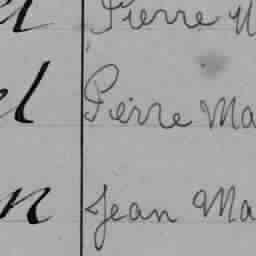 el Pierre
el Pierre Ma
n Jean Ma